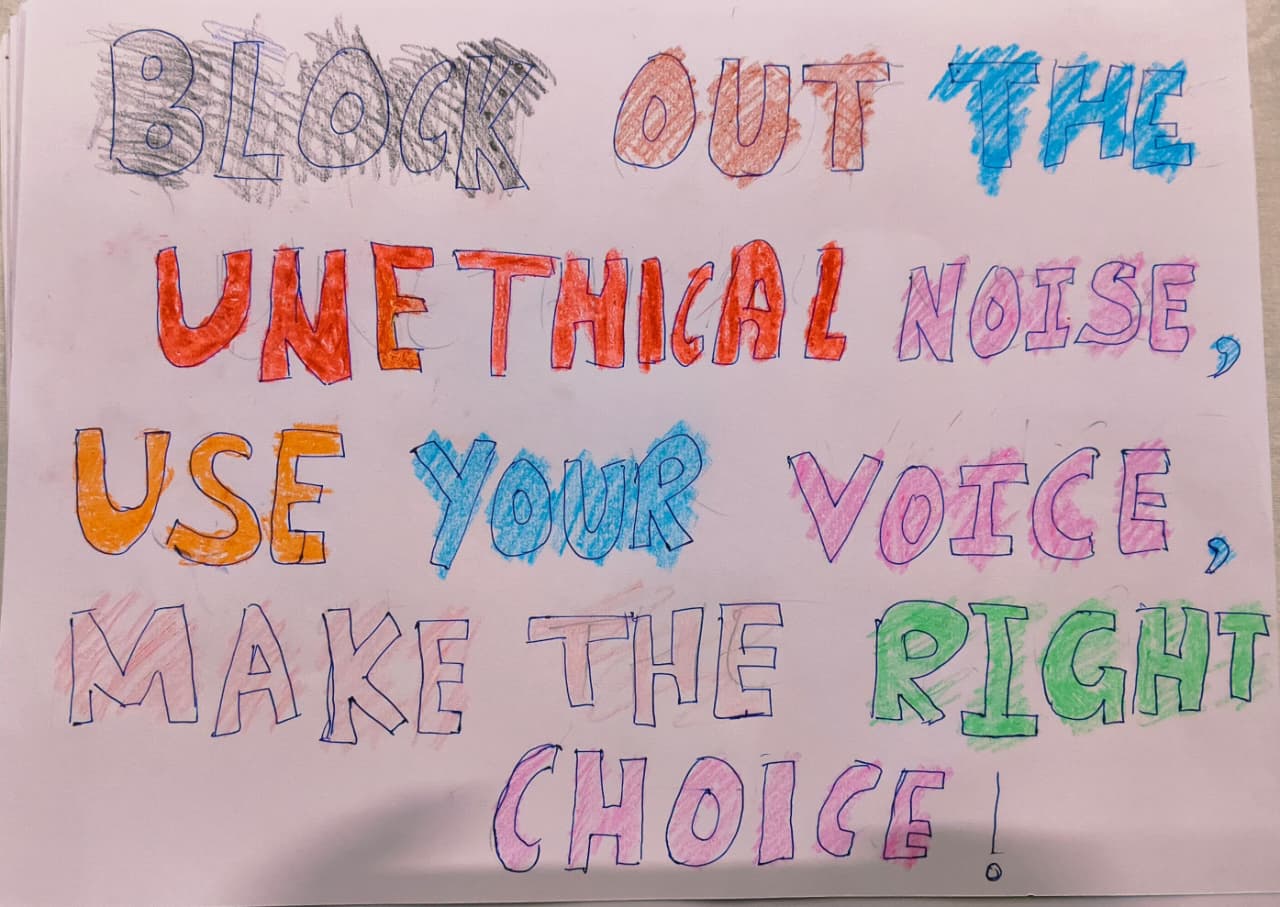 BLOCK OUT THE
UNETHICAL NOISE,
USE YOUR VOICE,
MAKE THE RIGHT
CHOICE!